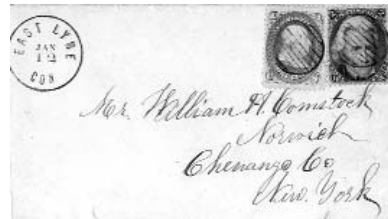 EAST LYME
JAN
12
CON
Mr. William H. Comstock
Norwich
Chenango Co
New. York